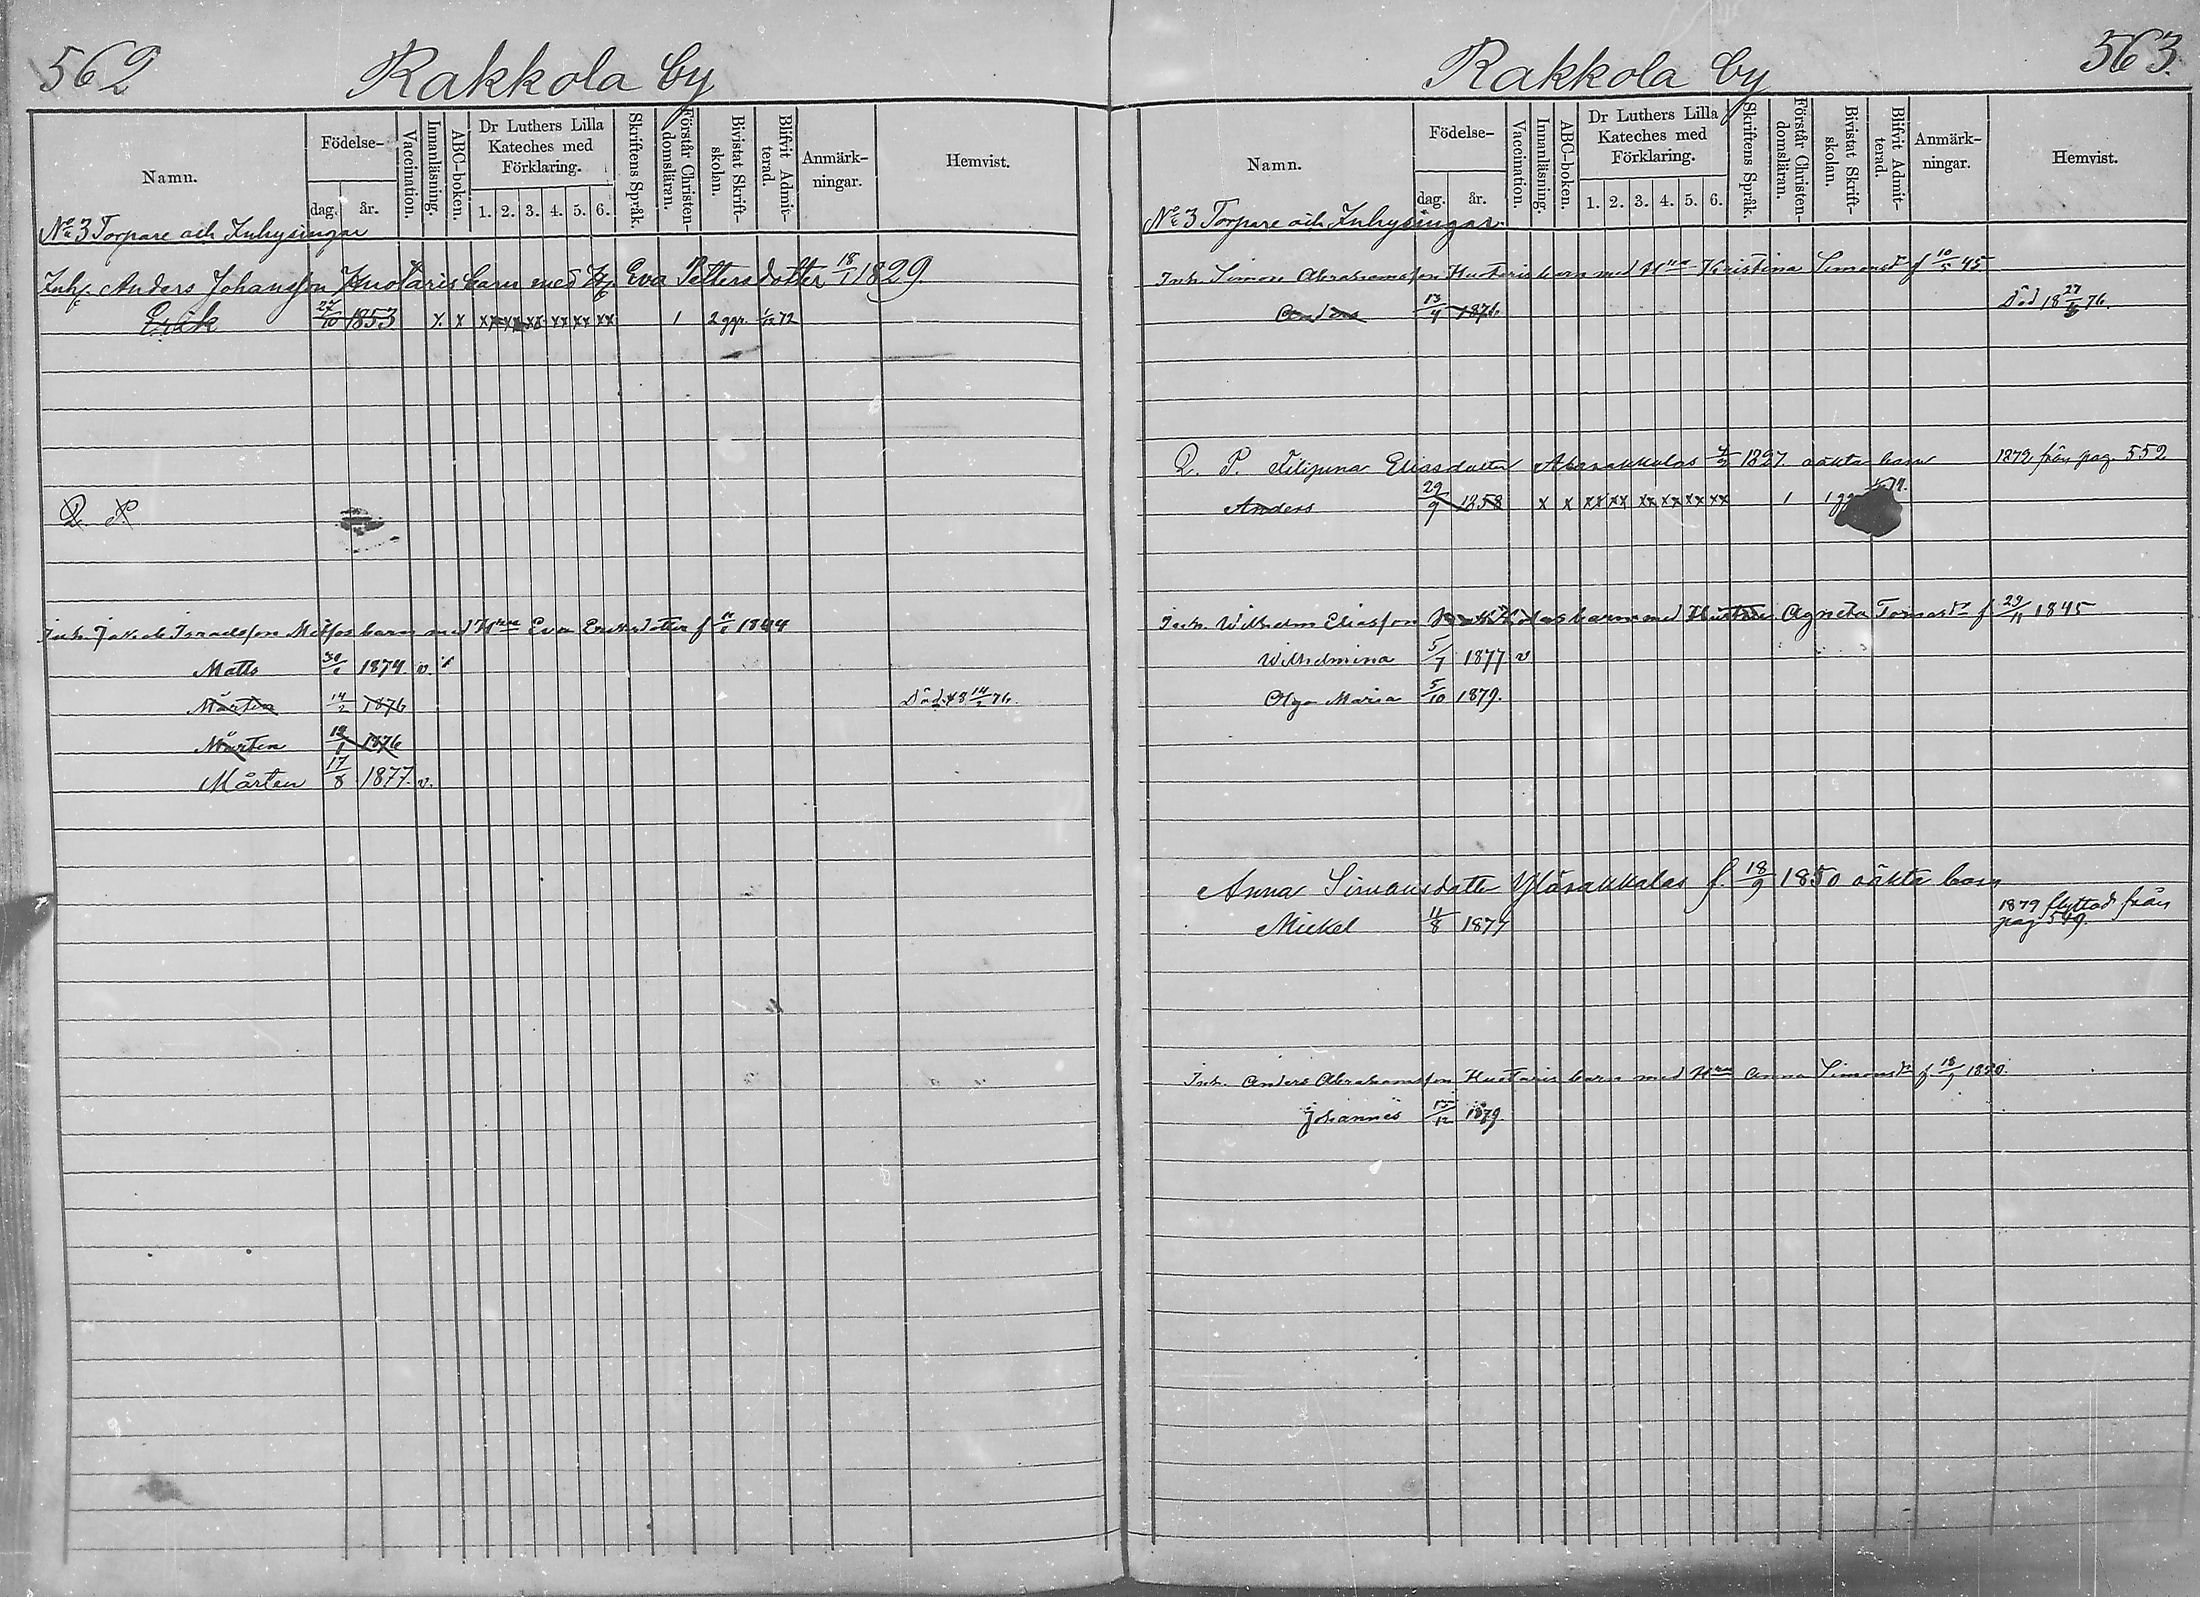 562
Rakkola by
Namn. Födelse- dag. år. Vaccination. Innanläsning. ABC-boken. Dr Luthers Lilla Kateches med Förklaring. 1. 2. 3. 4. 5. 6. Skriftens Språk. Förstår Christendomsläran. Bivistat Skriftskolan. Blifvit Admitterad. Anmärkningar. Hemvist.
No 3 Torpare och Inhysingar
Inh. Anders Johansson barn med H. Eva Pettersdotter 18/1 1829.
Erik 27/10 1853 x x xx xx xx xx xx xx 1 2 ggr. 72
D. P.
Inh. Jakob Israelsson barn med Hru Eva Eriksdotter f 1844
Matts 1874 v.
Mårten 14/2 1876 Död 18 14/2 76.
Mårten 1876
Mårten 17/8 1877. v.
563.
Rakkola by
Namn. Födelse- dag. år. Vaccination. Innanläsning. ABC-boken. Dr Luthers Lilla Kateches med Förklaring. 1. 2. 3. 4. 5. 6. Skriftens Språk. Förstår Christendomsläran. Bivistat Skriftskolan. Blifvit Admitterad. Anmärkningar. Hemvist.
No 3 Torpare och Inhysingar.
Inh. Simon Abrahamsson Huotaris barn med Hru Kristina Simonsdr f 10/5 45
Anders 13/4 1876 Död 18 76.
D. P. Filipina Eliasdotter 1827. oäkta barn 1872 från pag. 552
Anders 29/9 1858 x x xx xx xx xx xx xx 1
Inh. Wilhelm Eliasson barn med Hustru Agneta Tomasdr f 29/11 1845
Wilhelmina 5/7 1877 v
Olga Maria 5/10 1879.
Anna Simonsdotter f. 18/9 1850 oäkta barn
Mickel 11/8 1874 1879 flyttad från pag 549.
Inh. Anders Abrahamsson Huotaris barn med Hru Anna Simonsdr f 18/9 1850.
Johannes 15/12 1879.